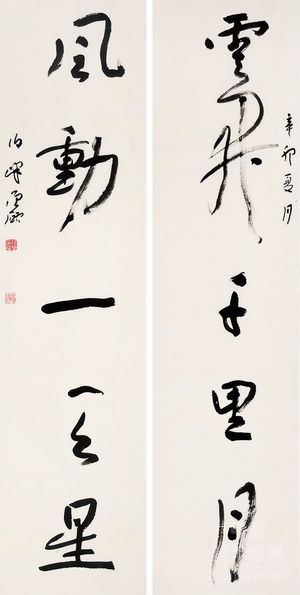 辛卯夏月
雲開千里月
風動一天星